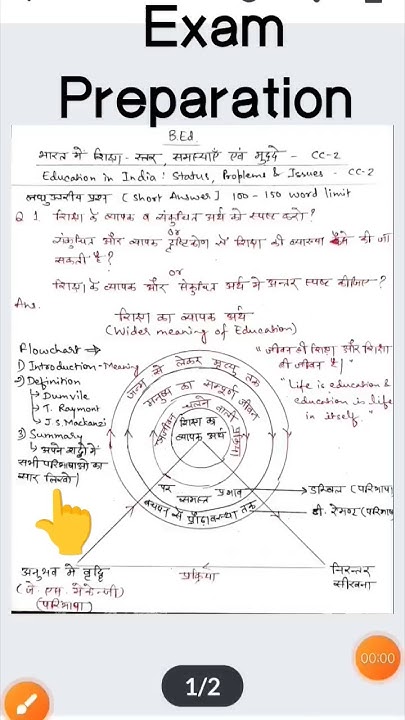 Exam
Preparation
B.Ed.
भारत में शिक्षा - स्तर, समस्याएँ एवं मुद्दे - CC-2
Education in India : Status, Problems & Issues - CC-2
लघु उत्तरीय प्रश्न [Short Answer] 100 - 150 word limit
Q 1. शिक्षा के व्यापक व संकुचित अर्थ को स्पष्ट करो?
or
संकुचित और व्यापक दृष्टिकोण से शिक्षा की व्याख्या कैसे की जा
सकती है?
or
शिक्षा के व्यापक और संकुचित अर्थ में अन्तर स्पष्ट कीजिए?
Ans.
शिक्षा का व्यापक अर्थ
(Wider meaning of Education)
Flowchart ⇒
1) Introduction - Meaning
2) Definition
↳ Dumvile
↳ T. Raymont
↳ J.S. Mackanzi
3) Summary
↳ अपने शब्दों में
सभी परिभाषाओं का
सार लिखो।
जन्म से लेकर मृत्यु तक
मनुष्य का सम्पूर्ण जीवन
आजीवन चलने वाली प्रक्रिया
शिक्षा का
व्यापक अर्थ
पर
समस्त प्रभाव
बचपन से प्रौढ़ावस्था तक
" जीवन ही शिक्षा और शिक्षा
ही जीवन है।"
"Life is education &
education is life
in itself."
डम्विल (परिभाषा
टी. रेमण्ट (परिभाषा
अनुभव में वृद्धि
(जे. एस. मेकेन्जी)
(परिभाषा)
प्रक्रिया
निरन्तर
सीखना
00:00
1/2